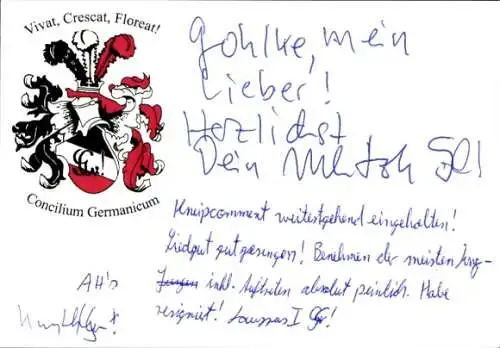 Vivat, Crescat, Floreat!
Gohlke, mein
Lieber!
Herzlichst
Dein
Concilium Germanicum
Kneipcomment weitestgehend eingehalten!
Liedgut gut gesungen! Benehmen der meisten Jung-
Jungen inkl. Auftreten absolut peinlich. Habe
resigniert!
AH's